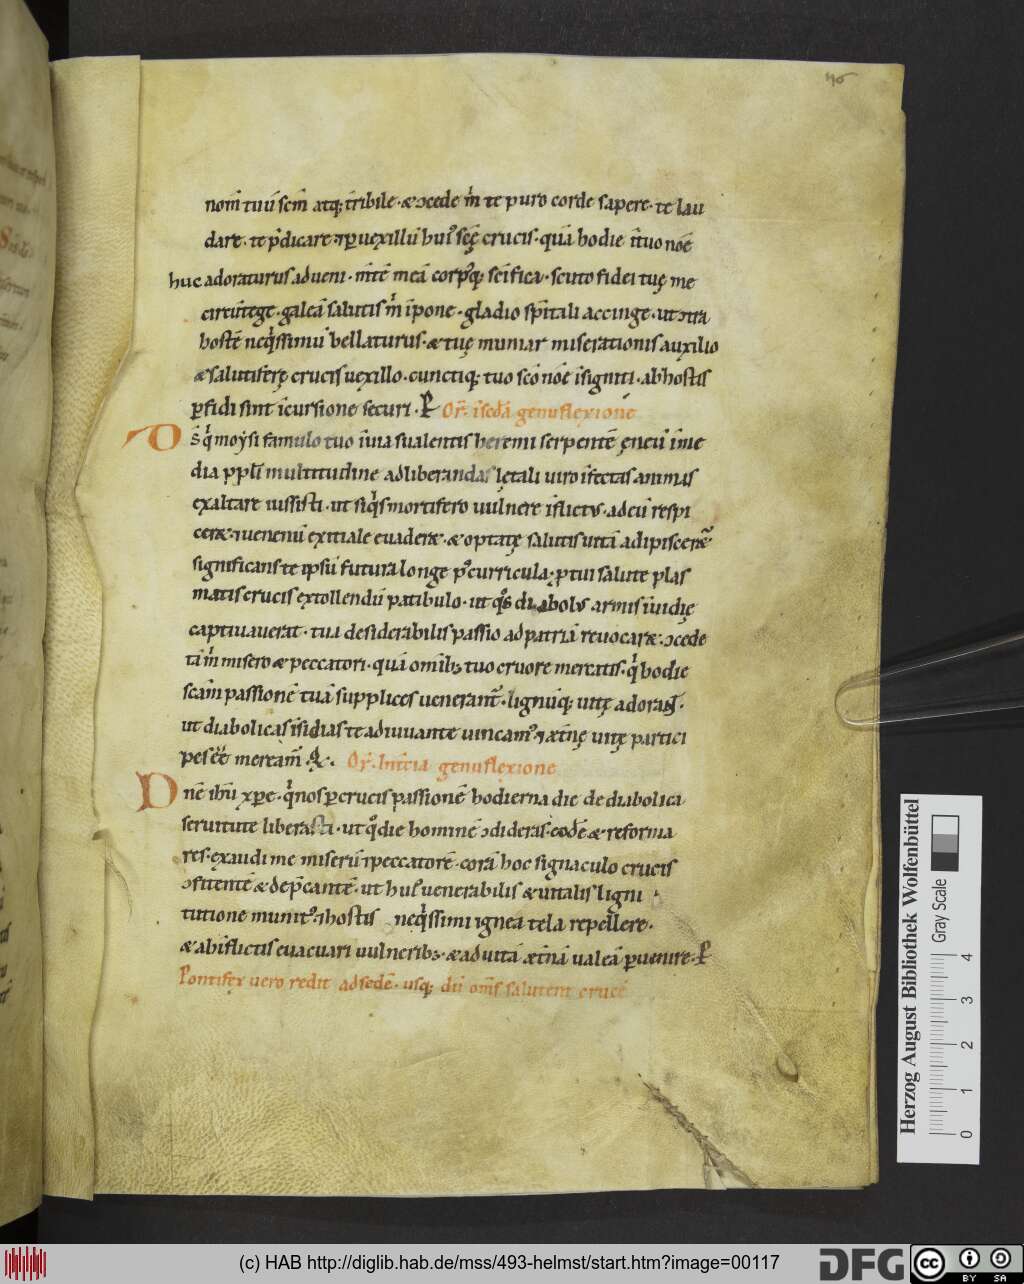 nom̄ tuū scm̄ atq; t̄ribile · & ɔcede m̄ te puro corde sapere · te lau
dare · te p̄dicare · ⁊ p uexillū huiꝰ scę̄ crucis · quā hodie ī tuo noē
huc adoraturus adueni · m̄tē meā corpꝰq; sc̄ifica · scuto fidei tuę me
circūtege · galeā salutis m̄ īpone · gladio sp̄itali accinge · ut ɔtra
hostē neq̄ssimū bellaturus · & tuę muniar miserationis auxilio
& salutiferę crucis uexillo · cunctiq; tuo scō noē īsigniti · ab hostis
ꝑfidi sint īcursione securi · P Or̄ · ī sc̄da genuflexione
D s q̄ moysi famulo tuo ī uia sualentis heremi serpentē ęneū ī me
dia ppl̄i multitudine ad liberandas lętali uiro īfectas animas
exaltare iussisti · ut siq̄s mortifero uulnere īflictus · ad eū respi
cer& · ⁊ uenenū exitiale euader& · & optatę salutis uitā adipiscer&
significans te ipsū futura longe pꝰ curricula · ꝓ tui salute plas
matis crucis extollendū patibulo · ut qͦs diabolus armis īuidię
captiuauerat · tua desiderabilis passio ad patriā reuocar& · ɔcede
tā m̄ misero & peccatori · quā omīb; tuo cruore mercatis · q̄ hodie
scam̄ passionē tuā supplices uenerant̄ · lignūq; uitę adorant ·
ut diabolicas īsidias te adiuuante uincamꝰ · ⁊ ęt̄nę uitę partici
pes eē meream̄ · P · Or̄ · In tercia genuflexione
D nē ihū xpe · q̄ nos ꝑ crucis passionē hodierna die de diabolica
seruitute liberasti · ut qͦ die hominē ɔdideras · eodē & reforma
res · exaudi me miserū ⁊ peccatorē · corā hoc signaculo crucis
ɔfitentē & dep̄cantē · ut huiꝰ uenerabilis & uitalis ligni
tuitione munitꝰ · ⁊ hostis neq̄ssimi ignea tela repellere ·
& ab īflictis euacuari uulnerib; · & ad uitā &̄nā ualeā ꝑuenire · P
Pontifex uero redit ad sedē · usq; dū om̄s salutent crucē
Herzog August Bibliothek Wolfenbüttel
Gray Scale
0 1 2 3 4
(c) HAB http://diglib.hab.de/mss/493-helmst/start.htm?image=00117
DFG
cc BY SA